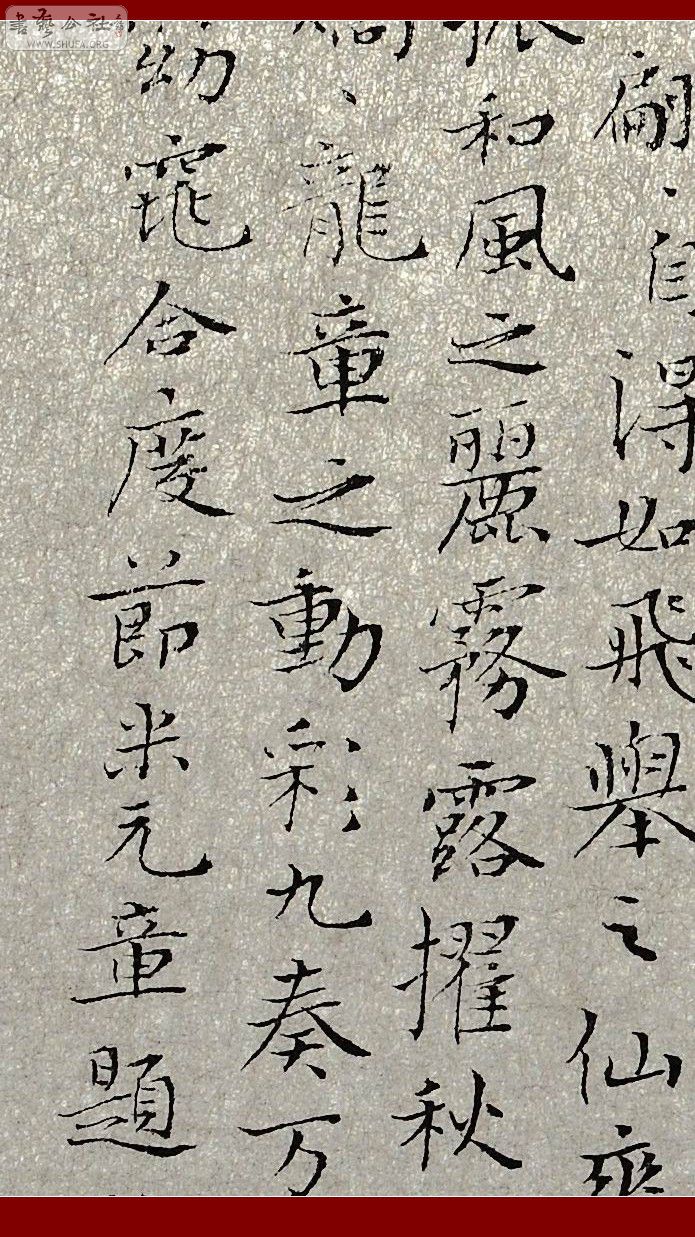 翩、自得如飛舉之仙
和風之麗霧露擢秋
、龍章之動彩九奏万
窕合度節米元章題
書藝公社
WWW.SHUFA.ORG